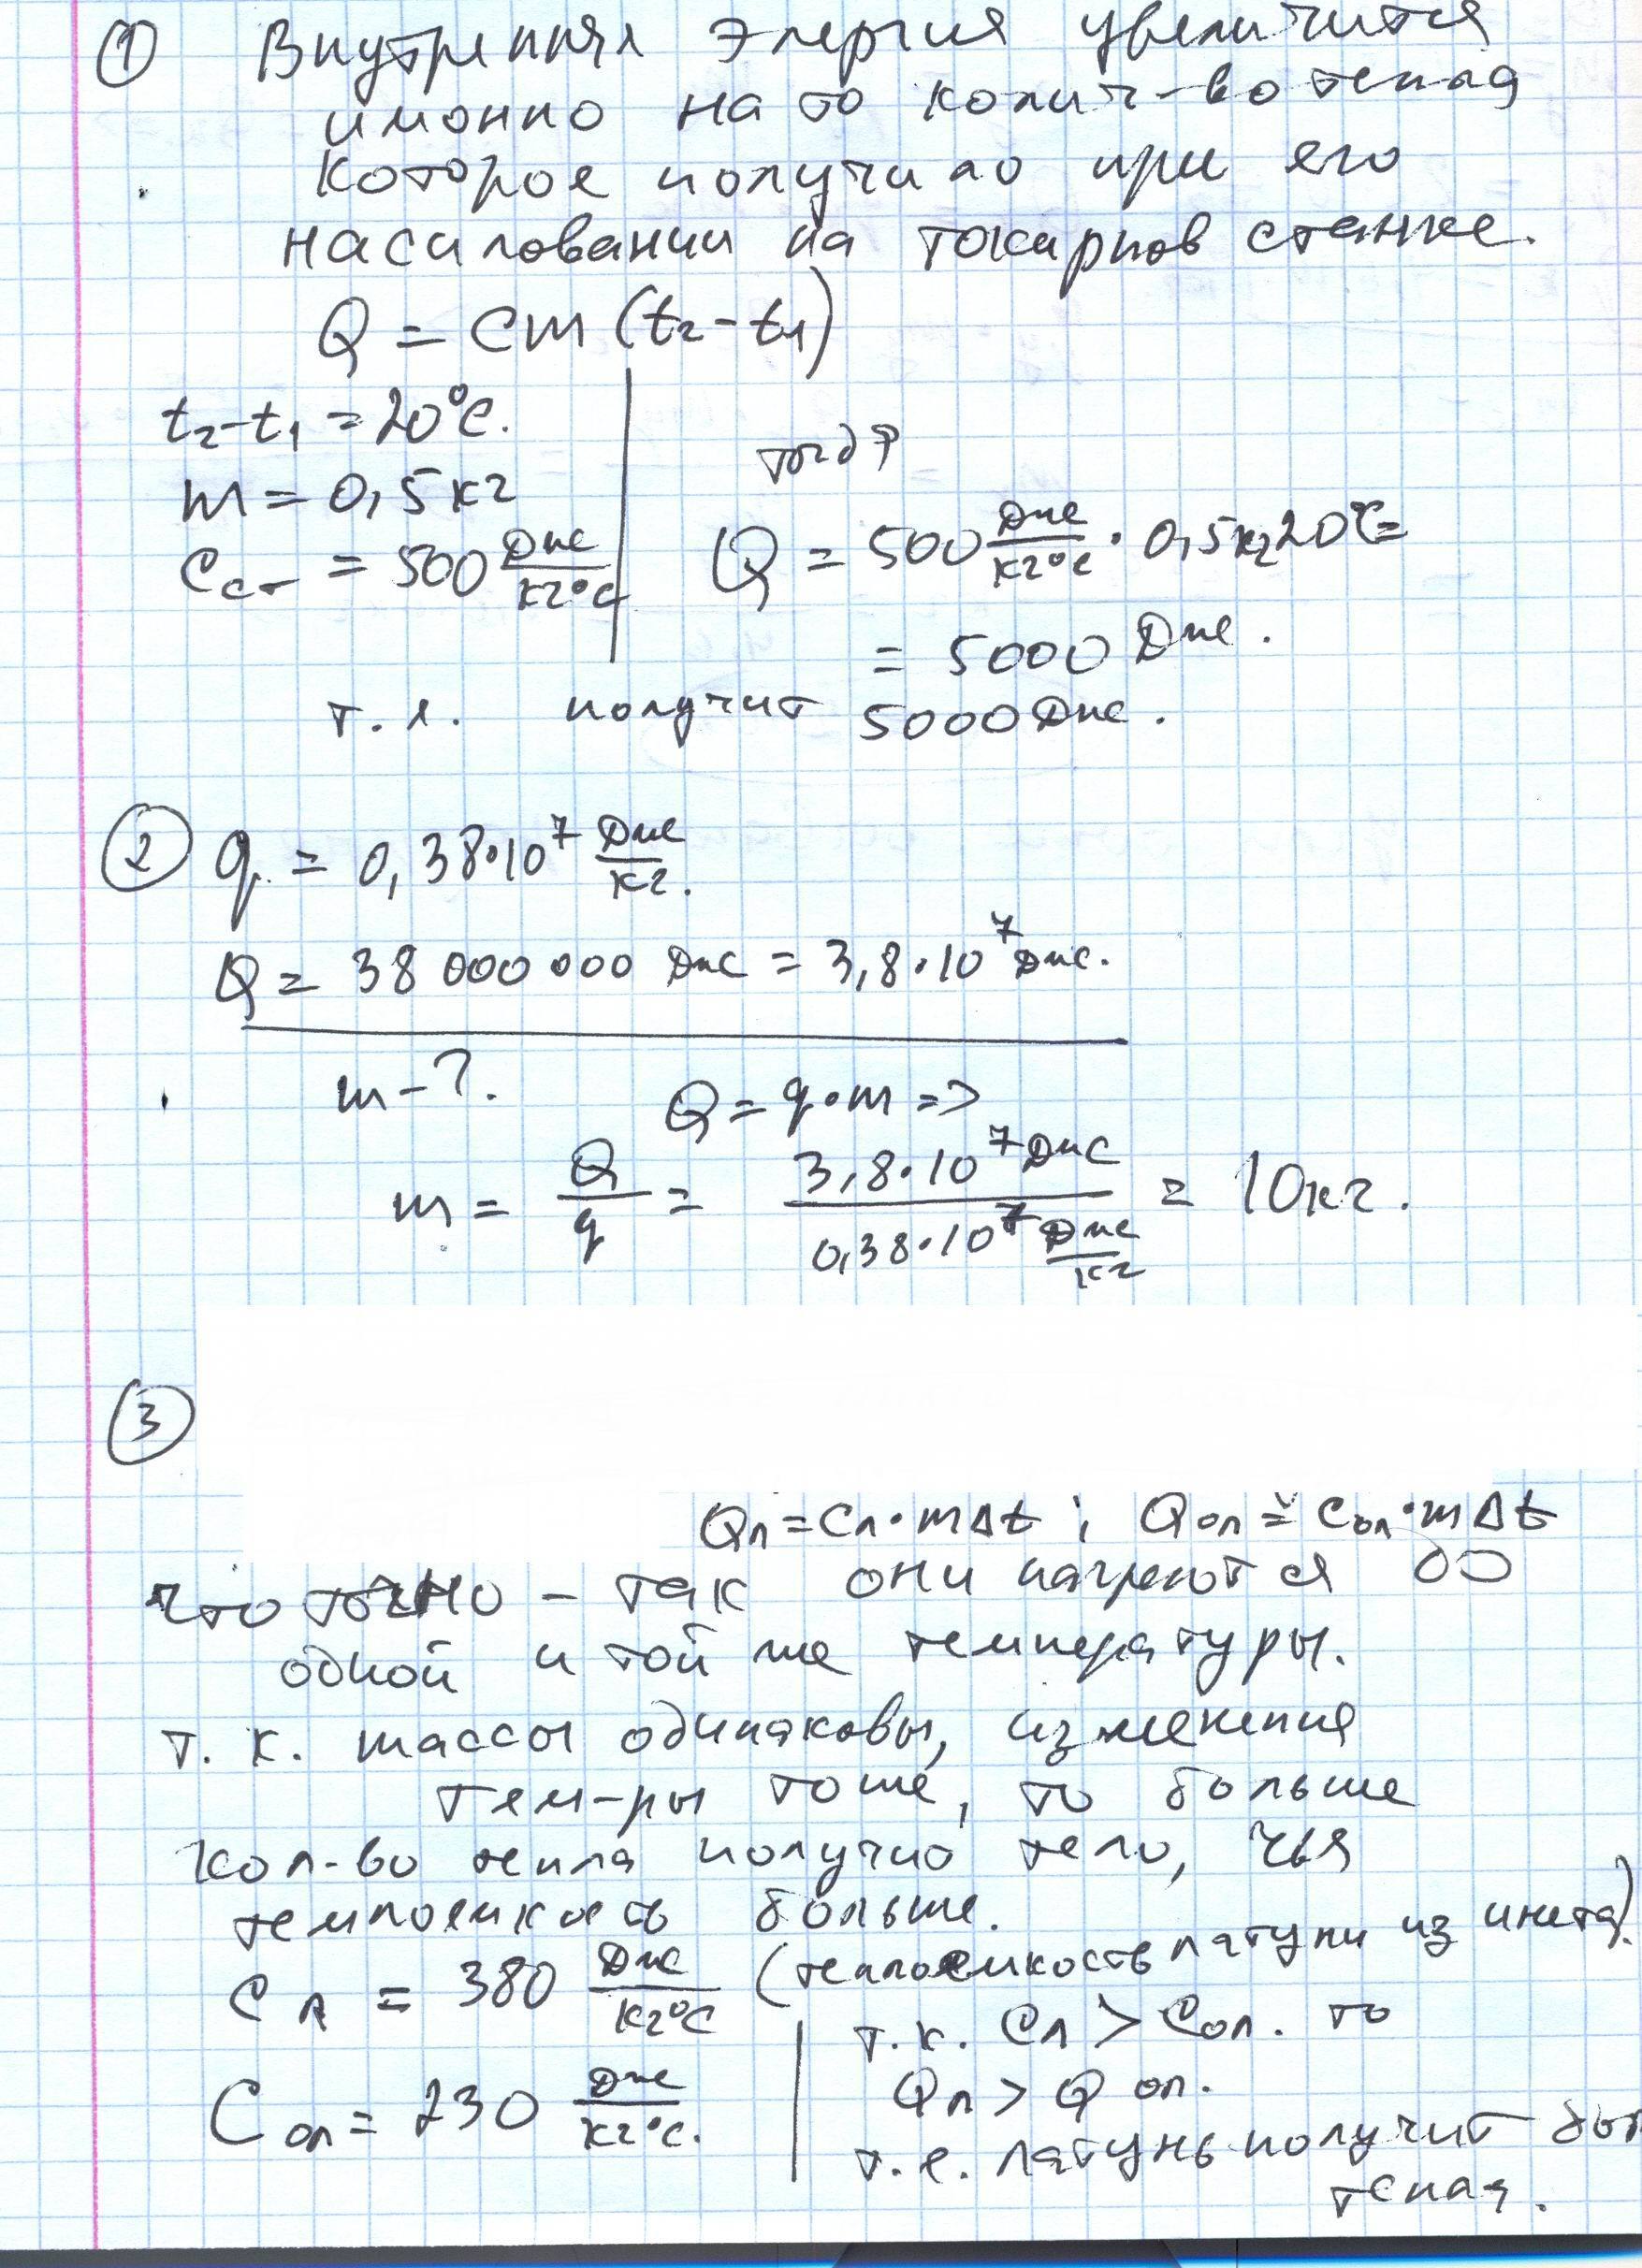 ① Внутренняя энергия увеличится
именно на то колич-во тепла
которое получило при его
насиловании на токарнов станке.
Q = cm (t₂-t₁)
t₂-t₁ = 20°C.
m = 0,5 кг
Cст = 500 Дж/кг°C
тогда
Q = 500 Дж/кг°C · 0,5кг 20°C =
= 5000 Дж.
т.е. получит 5000 Дж.
② q = 0,38·10⁷ Дж/кг.
Q = 38 000 000 Дж = 3,8·10⁷ Дж.
m - ?.
Q = q·m =>
m = Q/q = 3,8·10⁷ Дж / 0,38·10⁷ Дж/кг = 10кг.
③
Qл = Cл·mΔt ; Qол = Cол·mΔt
что точно - так они нагреются до
одной и той же температуры.
т.к. массы одинаковы, изменения
тем-ры тоже, то больше
кол-во тепла получио тело, чья
темлоемкость больше.
Cл = 380 Дж/кг°C (теплоемкость латуни из инета).
Cол = 230 Дж/кг°C.
т.к. Cл > Cол. то
Qл > Q ол.
т.е. латунь получит бол
тепла.